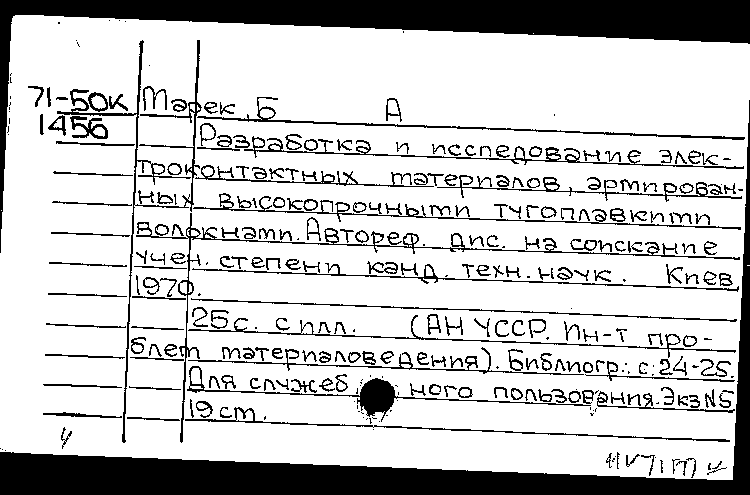 71-50к Марек, Б А
1456
Разработка и исследование элек-
троконтактных материалов, армирован-
ных высокопрочными тугоплавкими
волокнами. Автореф. дис. на соискание
учен. степени канд. техн. наук. Киев,
1970.
25с. с илл. (АН УССР. Ин-т про-
блем материаловедения). Библиогр.: с. 24-25.
Для служебного пользования. Экз N5
19 см.